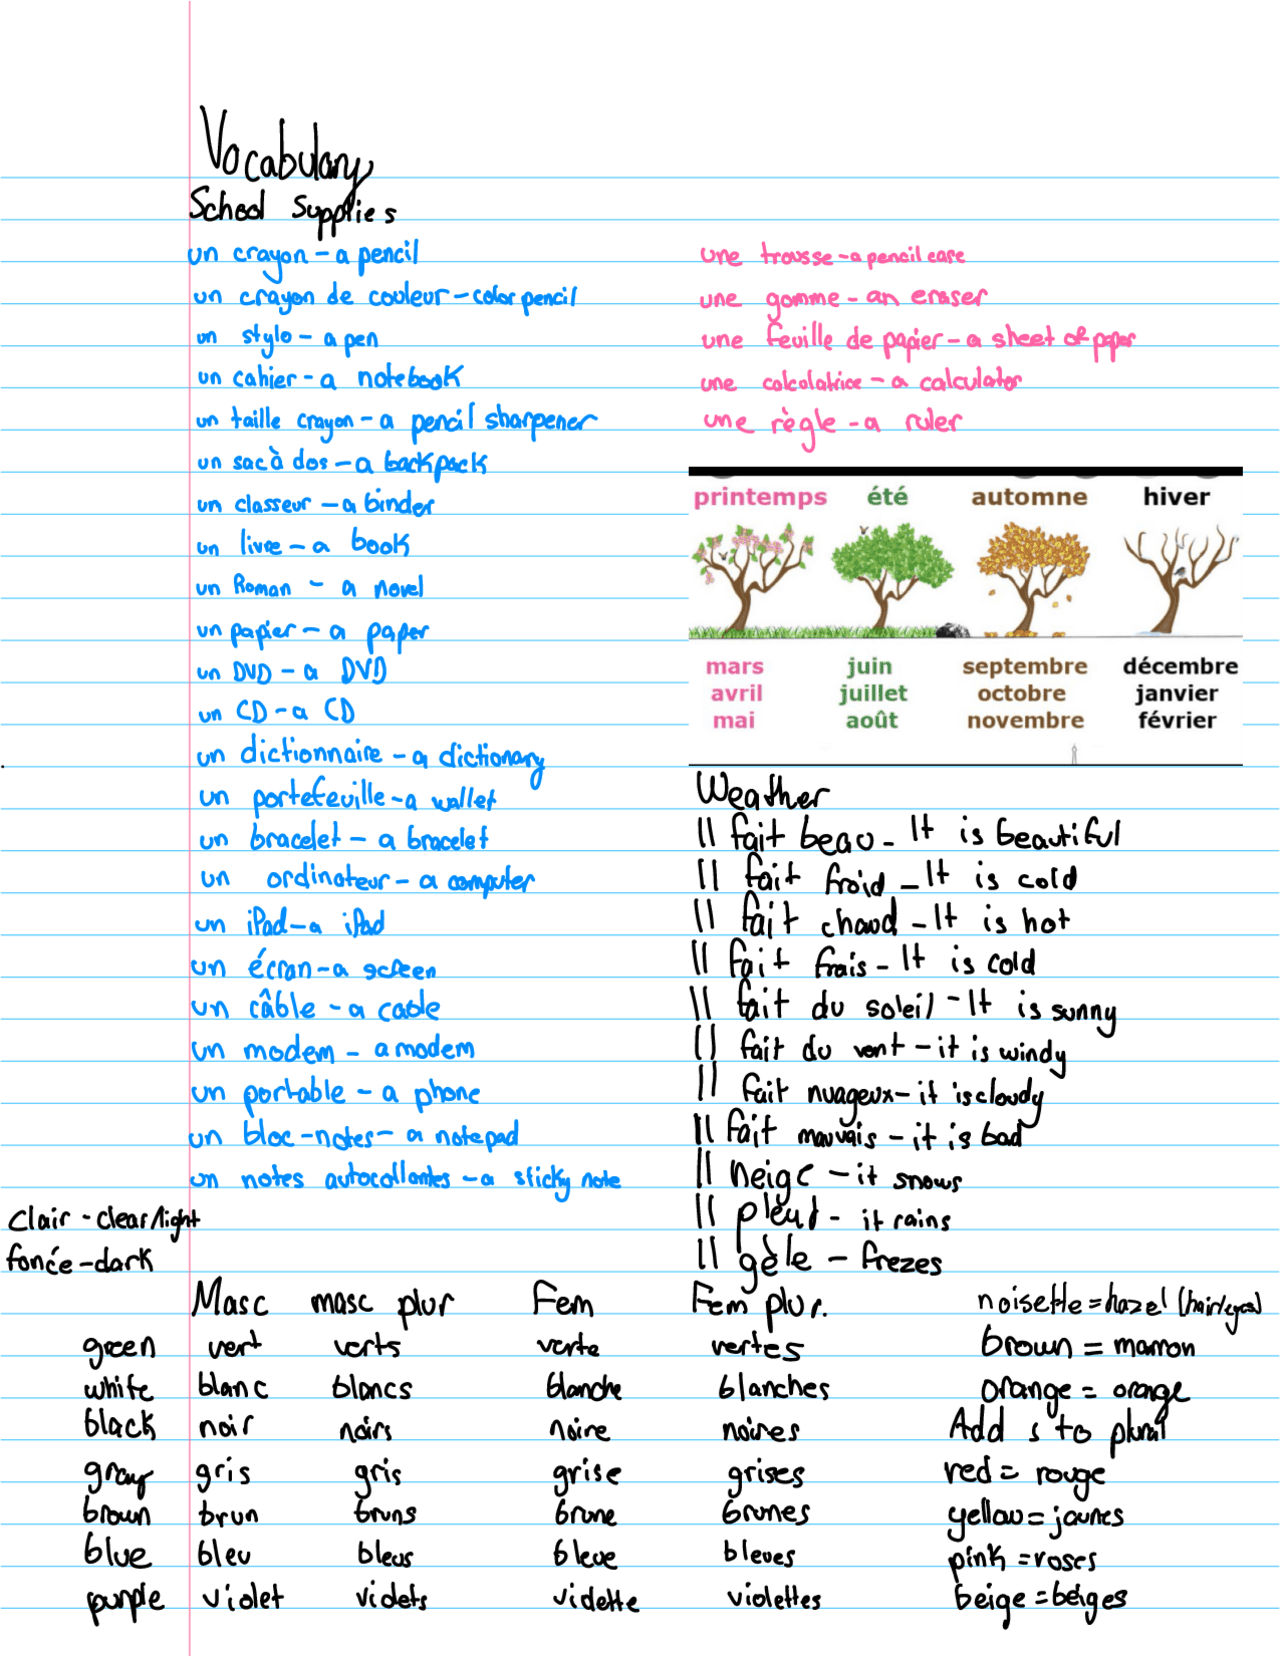 Vocabulary
School Supplies
un crayon - a pencil
un crayon de couleur - color pencil
un stylo - a pen
un cahier - a notebook
un taille crayon - a pencil sharpener
un sac à dos - a backpack
un classeur - a binder
un livre - a book
un Roman - a novel
un papier - a paper
un DVD - a DVD
un CD - a CD
un dictionnaire - a dictionary
un portefeuille - a wallet
un bracelet - a bracelet
un ordinateur - a computer
un iPad - a iPad
un écran - a screen
un câble - a cable
un modem - a modem
un portable - a phone
un bloc-notes - a notepad
un notes autocollantes - a sticky note
une trousse - a pencil case
une gomme - an eraser
une feuille de papier - a sheet of paper
une calculatrice - a calculator
une règle - a ruler
printemps été automne hiver
mars juin septembre décembre
avril juillet octobre janvier
mai août novembre février
Weather
Il fait beau - It is beautiful
Il fait froid - It is cold
Il fait chaud - It is hot
Il fait frais - It is cold
Il fait du soleil - It is sunny
Il fait du vent - it is windy
Il fait nuageux - it is cloudy
Il fait mauvais - it is bad
Il neige - it snows
Il pleut - it rains
Il gèle - frezes
clair - clear/light
foncée - dark
Masc masc plur Fem Fem plur. noisette = hazel (hair/eyes)
green vert verts verte vertes brown = marron
white blanc blancs blanche blanches orange = orange
black noir noirs noire noires Add s to plural
gray gris gris grise grises red = rouge
brown brun bruns brune brunes yellow = jaunes
blue bleu bleus bleue bleues pink = roses
purple violet violets violette violettes beige = beiges